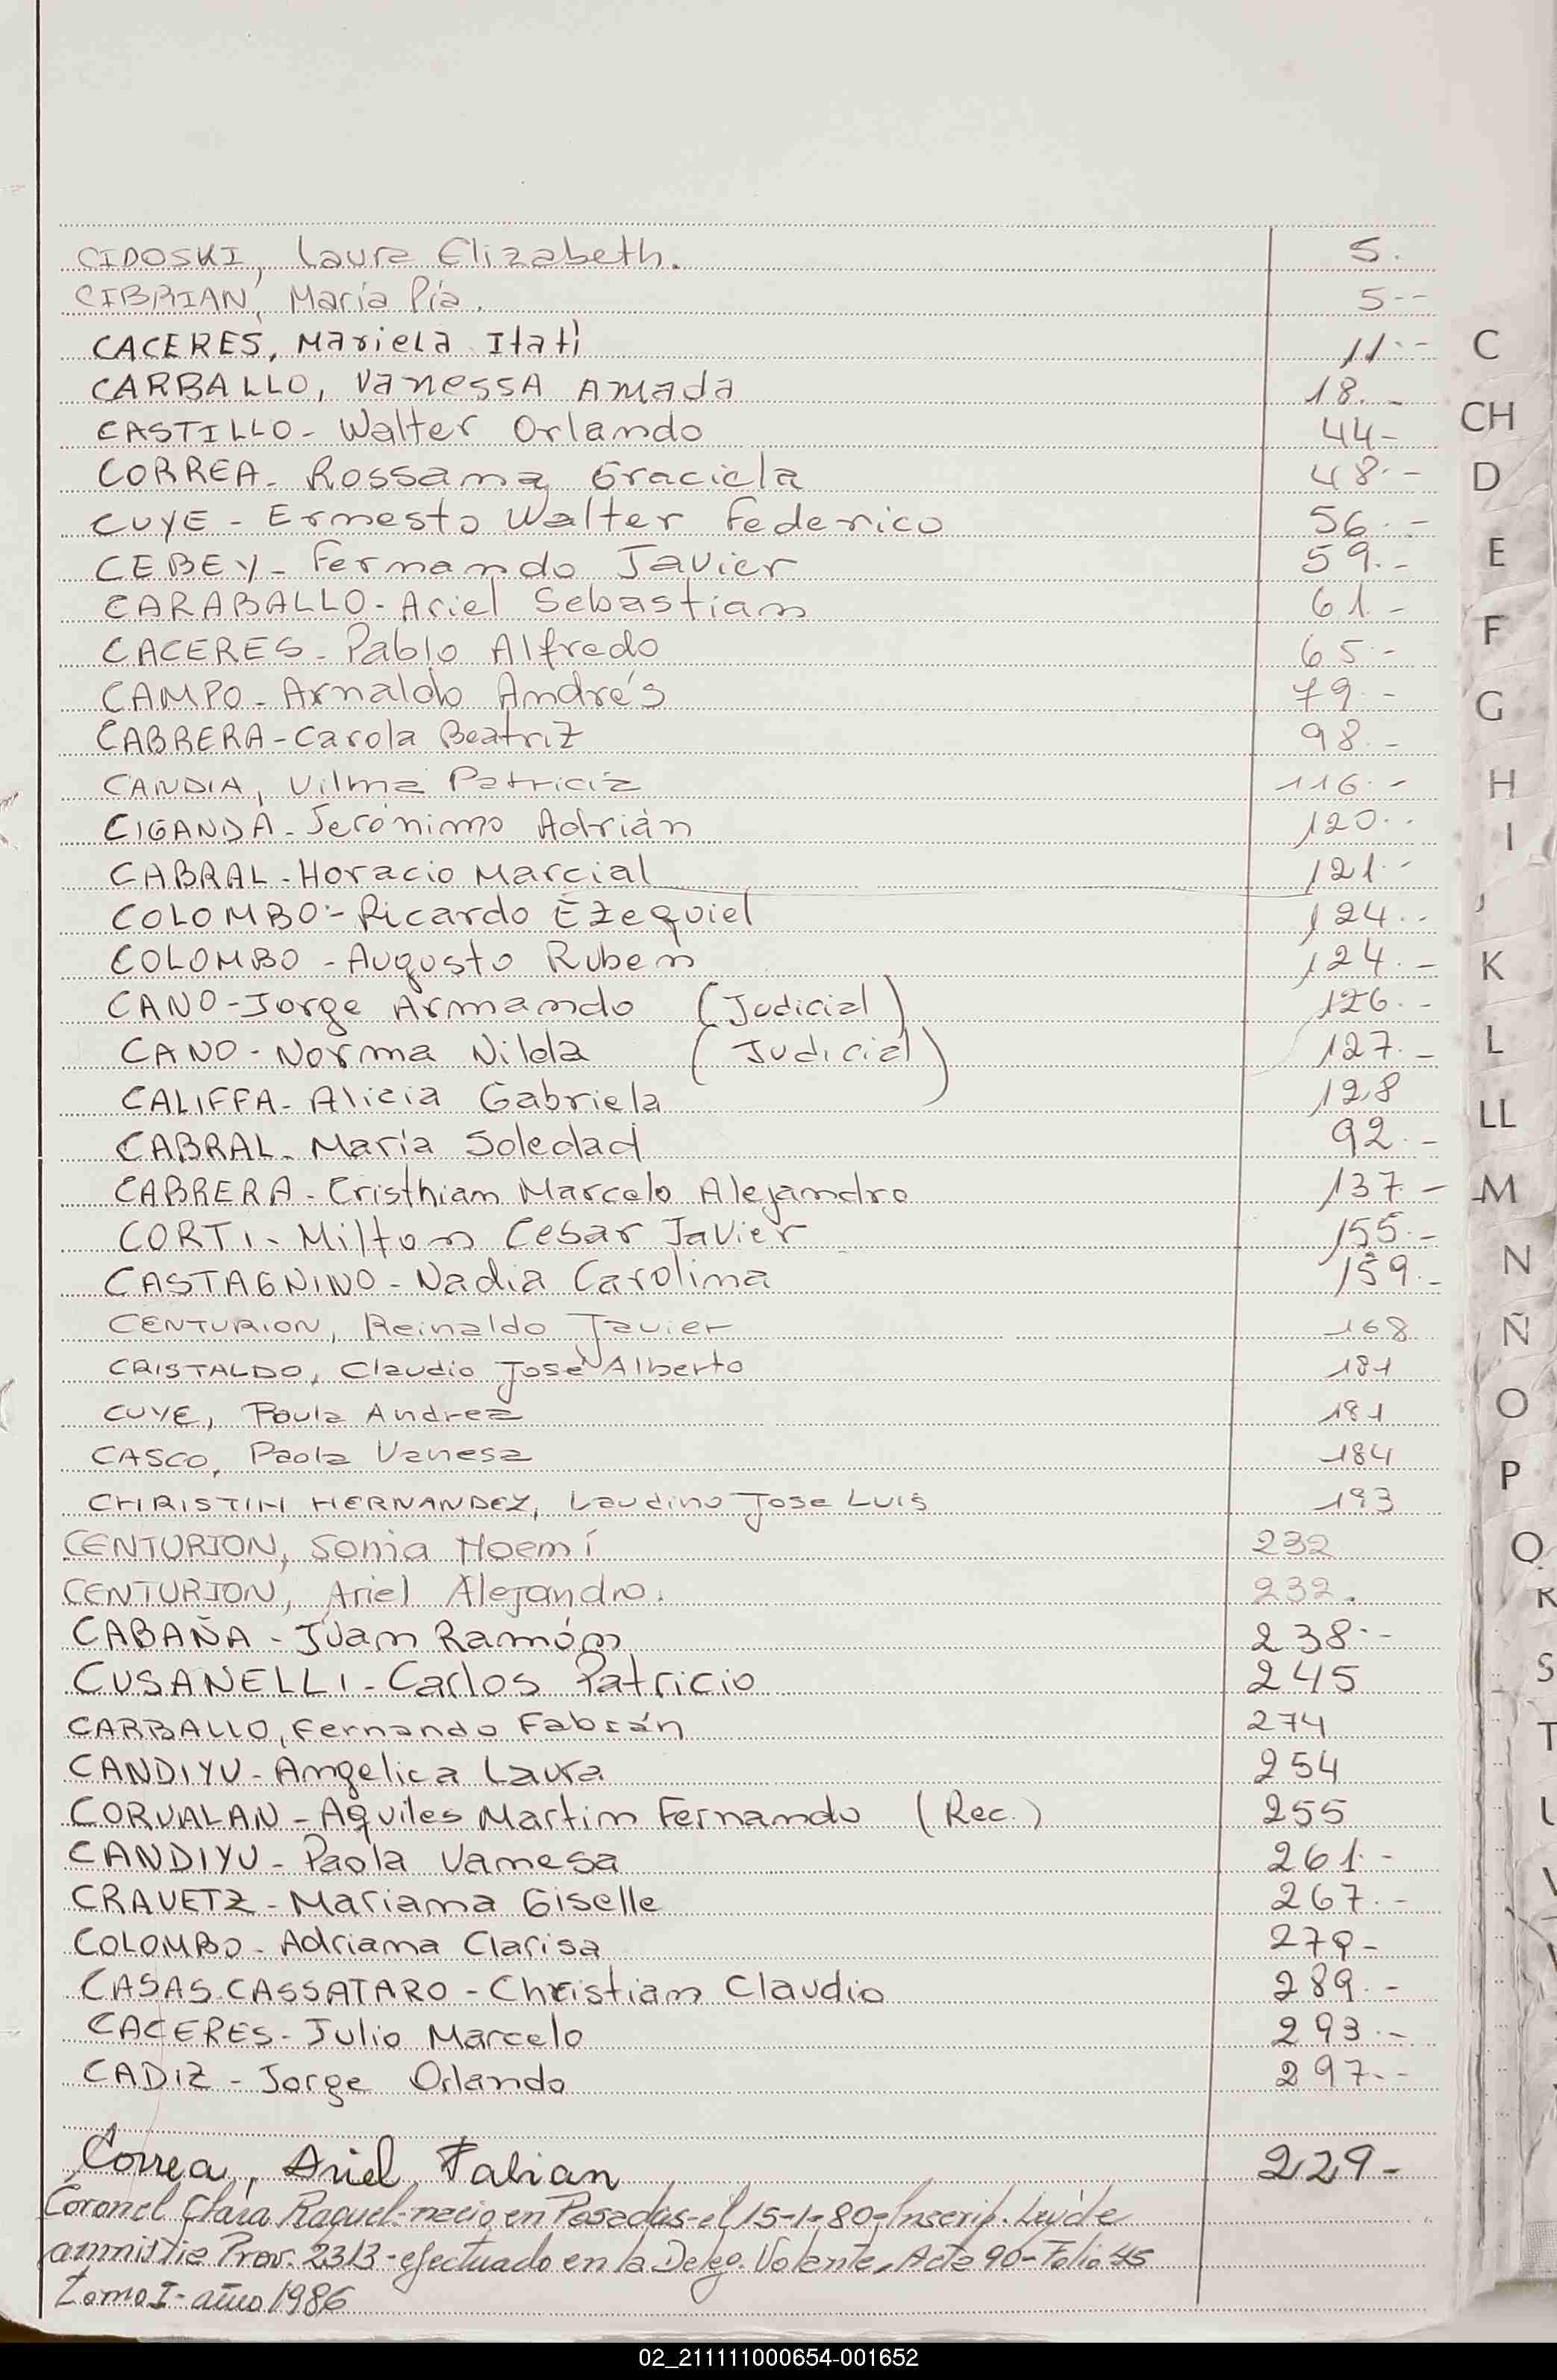 CIDOSKI, Laura Elizabeth. 5.
CIBRIAN, María Pía. 5--
CACERES, Mariela Itatí 11.-
CARBALLO, Vanessa Amada 18.-
CASTILLO- Walter Orlando 44-
CORREA- Rossana Graciela 48.-
CUYE - Ernesto Walter Federico 56.-
CEBEY- Fernando Javier 59.-
CARABALLO- Ariel Sebastian 61.-
CACERES- Pablo Alfredo 65.-
CAMPO- Arnaldo Andrés 79.-
CABRERA- Carola Beatriz 98.-
CANDIA, Vilma Patricia 116.-
CIGANDA- Jerónimo Adrián 120.-
CABRAL- Horacio Marcial 121.-
COLOMBO- Ricardo Ezequiel 124.-
COLOMBO - Augusto Ruben 124.-
CANO- Jorge Armando (Judicial) 126.-
CANO- Norma Nilda (Judicial) 127.-
CALIFFA- Alicia Gabriela 128
CABRAL- María Soledad 92.-
CABRERA- Cristhian Marcelo Alejandro 137.-
CORTI- Milton Cesar Javier 155.-
CASTAGNINO- Nadia Carolina 159.-
CENTURION, Reinaldo Javier 168
CRISTALDO, Claudio José Alberto 181
CUYE, Paula Andrea 181
CASCO, Paola Vanesa 184
CHRISTIN HERNANDEZ, Laudino Jose Luis 193
CENTURION, Sonia Noemí 232
CENTURION, Ariel Alejandro. 232.
CABAÑA - Juan Ramón 238.-
CUSANELLI- Carlos Patricio 245
CARBALLO, Fernando Fabián 274
CANDIYU- Angelica Laura 254
CORVALAN- Aquiles Martin Fernando (Rec.) 255
CANDIYU- Paola Vanesa 261.-
CRAVETZ- Mariana Giselle 267.-
COLOMBO- Adriana Clarisa 279-
CASAS CASSATARO - Christian Claudio 289.-
CACERES- Julio Marcelo 293.-
CADIZ - Jorge Orlando 297.-
Correa, Ariel Fabian 229-
Coronel Clara Raquel-nacio en Posadas-el 15-1-80-Inscrip. Ley de
amnistia Prov. 2313-efectuado en la Deleg. Volante, Acta 90-Folio 45
tomo I- año 1986
C
CH
D
E
F
G
H
I
J
K
L
LL
M
N
Ñ
O
P
Q
R
S
T
U
V
02_211111000654-001652